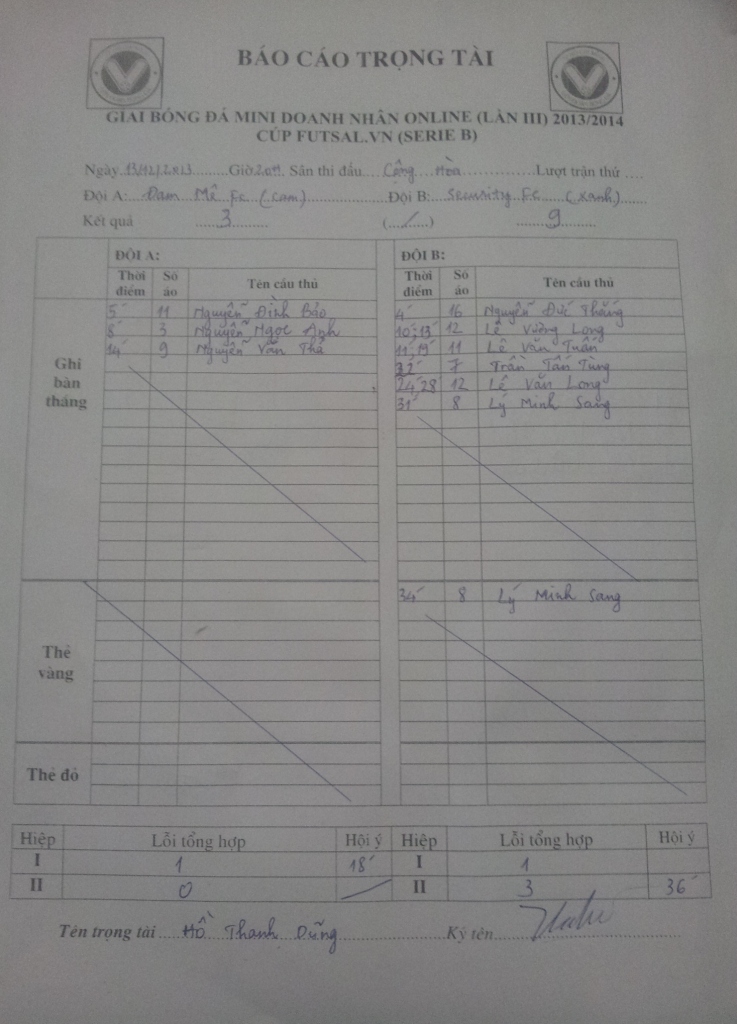 BÁO CÁO TRỌNG TÀI
GIẢI BÓNG ĐÁ MINI DOANH NHÂN ONLINE (LẦN III) 2013/2014
CÚP FUTSAL.VN (SERIE B)
Ngày 13/12/2013 Giờ 20h Sân thi đấu Cộng Hòa Lượt trận thứ
Đội A: Đam Mê Fc (Cam) Đội B: Security Fc (Xanh)
Kết quả 3 (/) 9
ĐỘI A: ĐỘI B:
Thời điểm Số áo Tên cầu thủ Thời điểm Số áo Tên cầu thủ
Ghi bàn thắng
5' 11 Nguyễn Đình Bảo 4' 16 Nguyễn Đức Thắng
8' 3 Nguyễn Ngọc Anh 10' 13' 12 Lê Vương Long
14' 9 Nguyễn Văn 11' 19' 11 Lê Văn Tuấn
32' 7 Trần Tấn Tùng
24' 28' 12 Lê Văn Long
31' 8 Lý Minh Sang
Thẻ vàng
34' 8 Lý Minh Sang
Thẻ đỏ
Hiệp Lỗi tổng hợp Hội ý Hiệp Lỗi tổng hợp Hội ý
I 1 18' I 1
II 0 II 3 36'
Tên trọng tài Hồ Thanh Dũng Ký tên